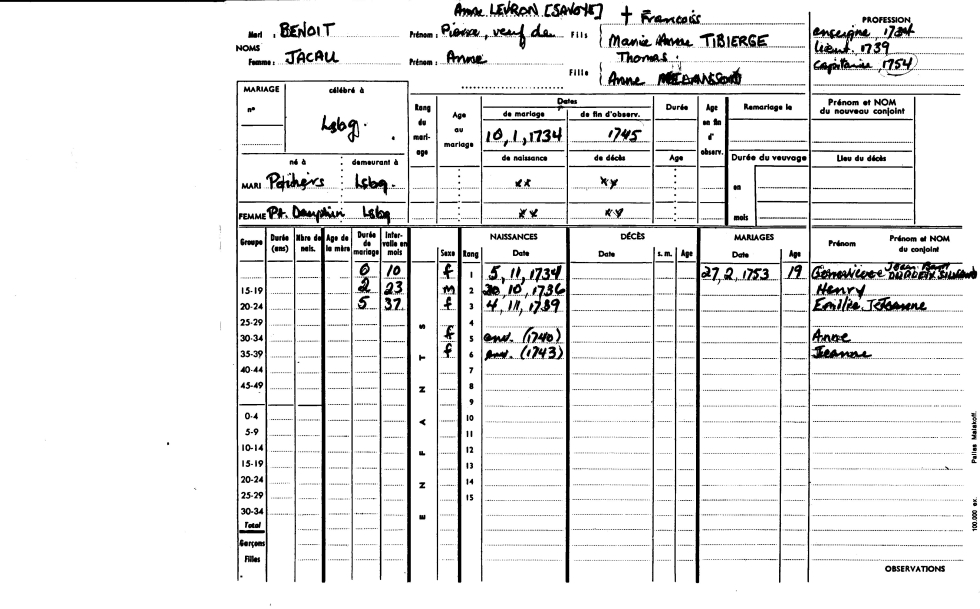 Anne LEVRON [SAVOYE] + Francois
Mari : BENOIT Prénom : Pierre, veuf de Fils Marie Anne TIBIERGE
NOMS
Femme : JACAU Prénom : Anne Fille Thomas
Anne
PROFESSION
enseigne, 1734
lieut. 1739
capitaine, 1754
MARIAGE célébré à
n° Lsbg.
né à demeurant à
MARI Lsbg.
FEMME Pt. Dauphin Lsbg
Rang du mariage Age au mariage Dates Durée Age en fin d'observ. Remariage le Prénom et NOM du nouveau conjoint
de mariage de fin d'observ.
10, 1, 1734 1745
de naissance de décès Age Durée du veuvage Lieu du décès
xx xx en
xx xx mois
Groupe Durée (ans) Nbre de nais. Age de la mère Durée de mariage Intervalle en mois ENFANTS Sexe Rang NAISSANCES Date DÉCÈS Date s. m. Age MARIAGES Date Age Prénom Prénom et NOM du conjoint
0 10 f 1 5, 11, 1734 27, 2, 1753 19 Genevieve Jean Bart
15-19 2 23 m 2 20, 10, 1736 Henry
20-24 5 37 f 3 4, 11, 1739 Emilie Jeanne
25-29 4
30-34 f 5 env. (1740) Anne
35-39 f 6 env. (1743) Jeanne
40-44 7
45-49 8
9
0-4 10
5-9 11
10-14 12
15-19 13
20-24 14
25-29 15
30-34
Total
Garçons
Filles
OBSERVATIONS
100.000 ex. Pallas Malakoff.